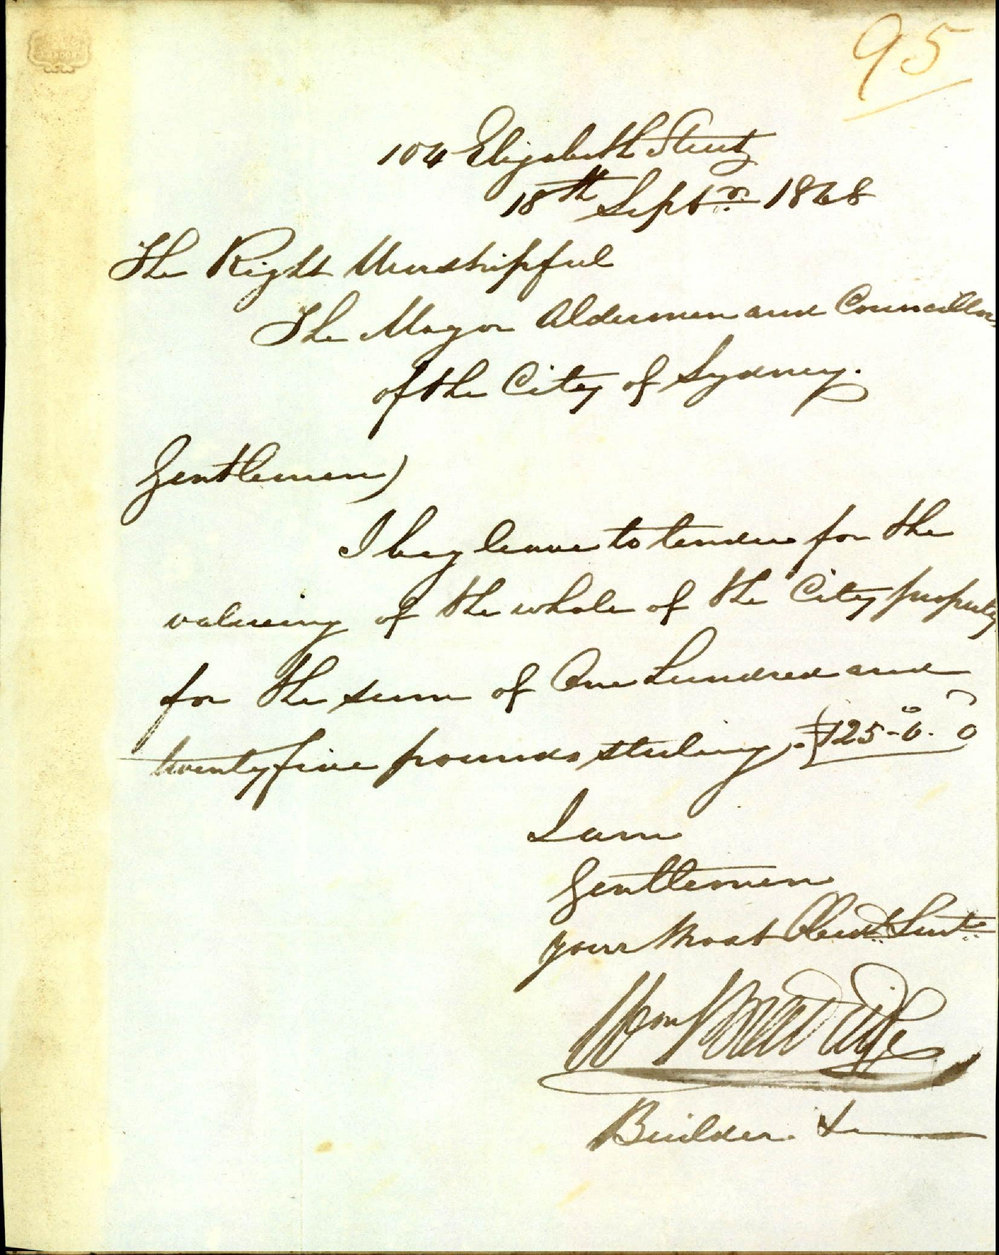 95
104 Elizabeth Street
18th Septr. 1868
The Right Worshipful
The Mayor Aldermen and Councillors
of the City of Sydney.
Gentlemen)
I beg leave to tender for the
valueing of the whole of the City property
for the sum of One Hundred and
twenty five pounds sterling. £125-0.0
I am
Gentlemen
your Most Obedt. Servt.
Wm
Builder &c